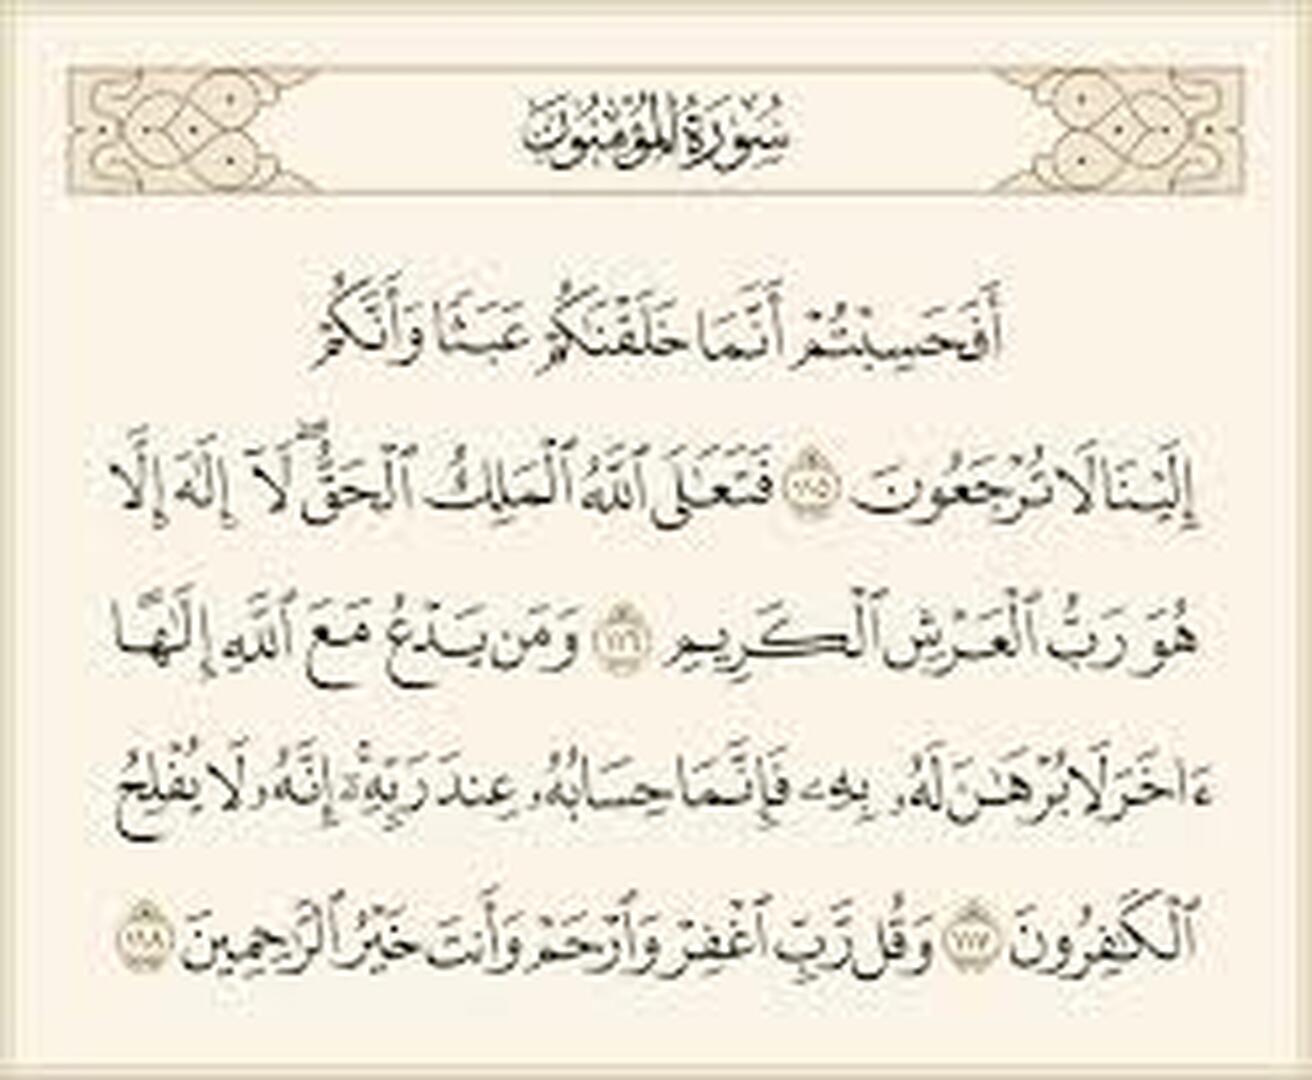 سُورَةُ المُؤْمِنُونَ
أَفَحَسِبْتُمْ أَنَّمَا خَلَقْنَٰكُمْ عَبَثًا وَأَنَّكُمْ
إِلَيْنَا لَا تُرْجَعُونَ ١١٥ فَتَعَٰلَى ٱللَّهُ ٱلْمَلِكُ ٱلْحَقُّ ۖ لَآ إِلَٰهَ إِلَّا
هُوَ رَبُّ ٱلْعَرْشِ ٱلْكَرِيمِ ١١٦ وَمَن يَدْعُ مَعَ ٱللَّهِ إِلَٰهًا
ءَاخَرَ لَا بُرْهَٰنَ لَهُۥ بِهِۦ فَإِنَّمَا حِسَابُهُۥ عِندَ رَبِّهِۦٓ ۚ إِنَّهُۥ لَا يُفْلِحُ
ٱلْكَٰفِرُونَ ١١٧ وَقُل رَّبِّ ٱغْفِرْ وَٱرْحَمْ وَأَنتَ خَيْرُ ٱلرَّٰحِمِينَ ١١٨